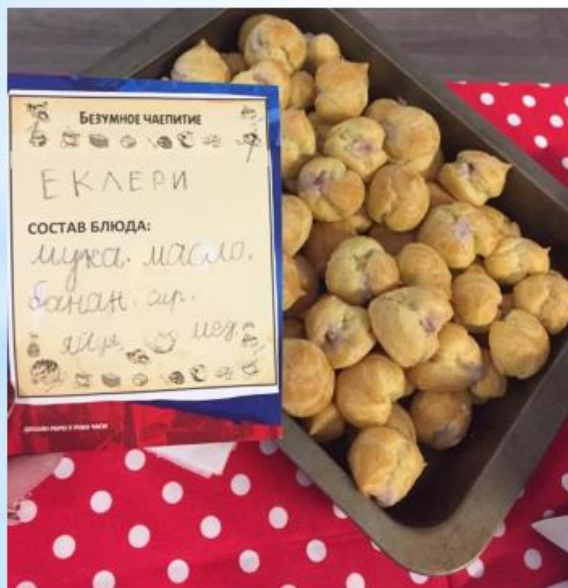 БЕЗУМНОЕ ЧАЕПИТИЕ
ЕКЛЕРИ
СОСТАВ БЛЮДА:
мука. масло.
банан. сир.
яйця. мед.